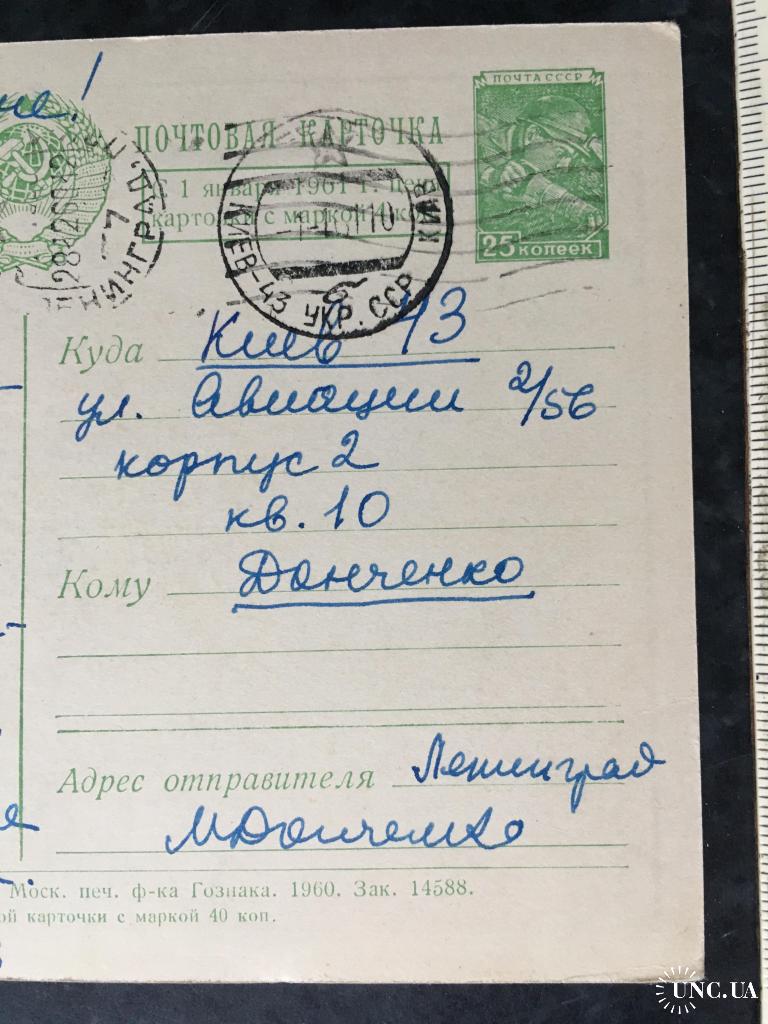 не!
ПОЧТА СССР
ПОЧТОВАЯ КАРТОЧКА
1 января 1961 г. цена
карточки с маркой 4 коп.
25 копеек
КИЕВ-43 УКР. ССР КИЇВ
Куда Киев 43
ул. Авиации 2/56
корпус 2
кв. 10
Кому Данченко
Адрес отправителя Ленинград
МДанченко
Моск. печ. ф-ка Гознака. 1960. Зак. 14588.
ой карточки с маркой 40 коп.
UNC.UA